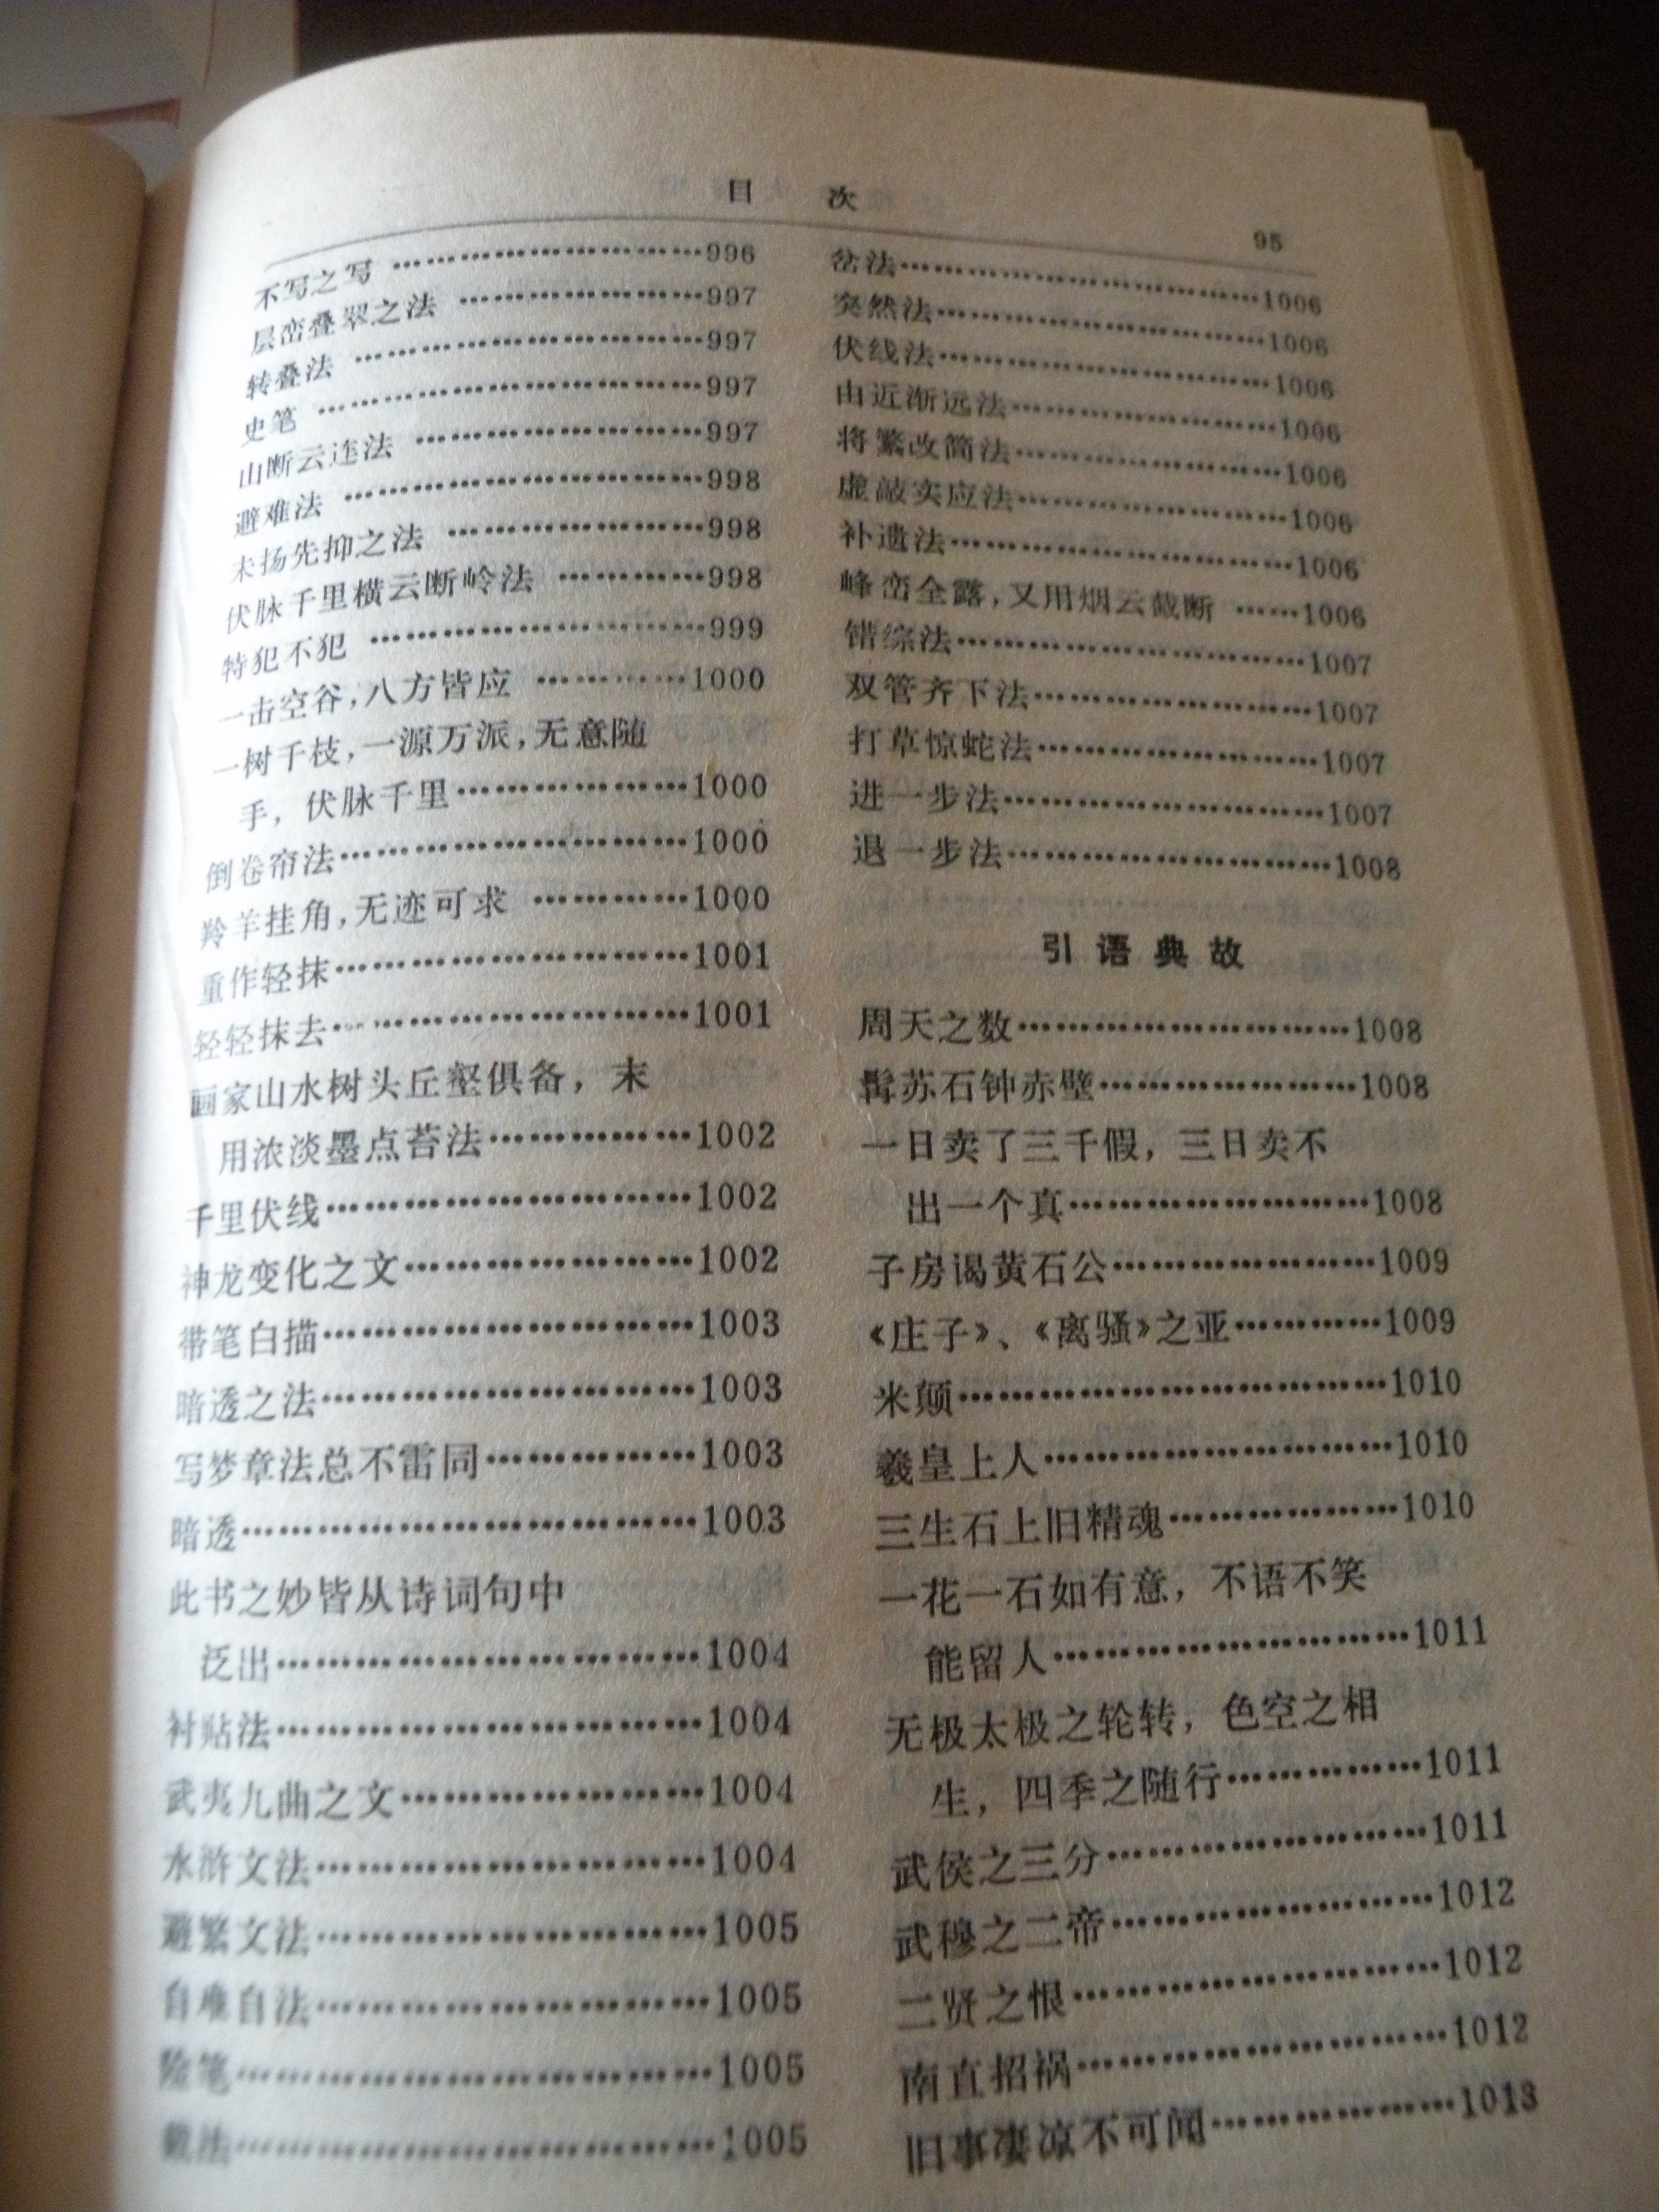 目 次
95
不写之写………………………996
层峦叠翠之法………………………997
转叠法………………………997
史笔………………………997
山断云连法………………………997
避难法………………………998
未扬先抑之法………………………998
伏脉千里横云断岭法…………998
特犯不犯………………………999
一击空谷，八方皆应…………1000
一树千枝，一源万派，无意随
手，伏脉千里………………1000
倒卷帘法………………………1000
羚羊挂角，无迹可求…………1000
重作轻抹………………………1001
轻轻抹去………………………1001
画家山水树头丘壑俱备，末
用浓淡墨点苔法………………1002
千里伏线………………………1002
神龙变化之文………………………1002
带笔白描………………………1003
暗透之法………………………1003
写梦章法总不雷同………………1003
暗透………………………1003
此书之妙皆从诗词句中
泛出………………………1004
衬贴法………………………1004
武夷九曲之文………………………1004
水浒文法………………………1004
避繁文法………………………1005
自难自法………………………1005
险笔………………………1005
截法………………………1005
岔法………………………1006
突然法………………………1006
伏线法………………………1006
由近渐远法………………………1006
将繁改简法………………………1006
虚敲实应法………………………1006
补遗法………………………1006
峰峦全露，又用烟云截断……1006
错综法………………………1007
双管齐下法………………………1007
打草惊蛇法………………………1007
进一步法………………………1007
退一步法………………………1008
引语典故
周天之数………………………1008
髯苏石钟赤壁………………………1008
一日卖了三千假，三日卖不
出一个真………………………1008
子房谒黄石公………………………1009
《庄子》、《离骚》之亚…………1009
米颠………………………1010
羲皇上人………………………1010
三生石上旧精魂………………1010
一花一石如有意，不语不笑
能留人………………………1011
无极太极之轮转，色空之相
生，四季之随行………………1011
武侯之三分………………………1011
武穆之二帝………………………1012
二贤之恨………………………1012
南直招祸………………………1012
旧事凄凉不可闻………………1013